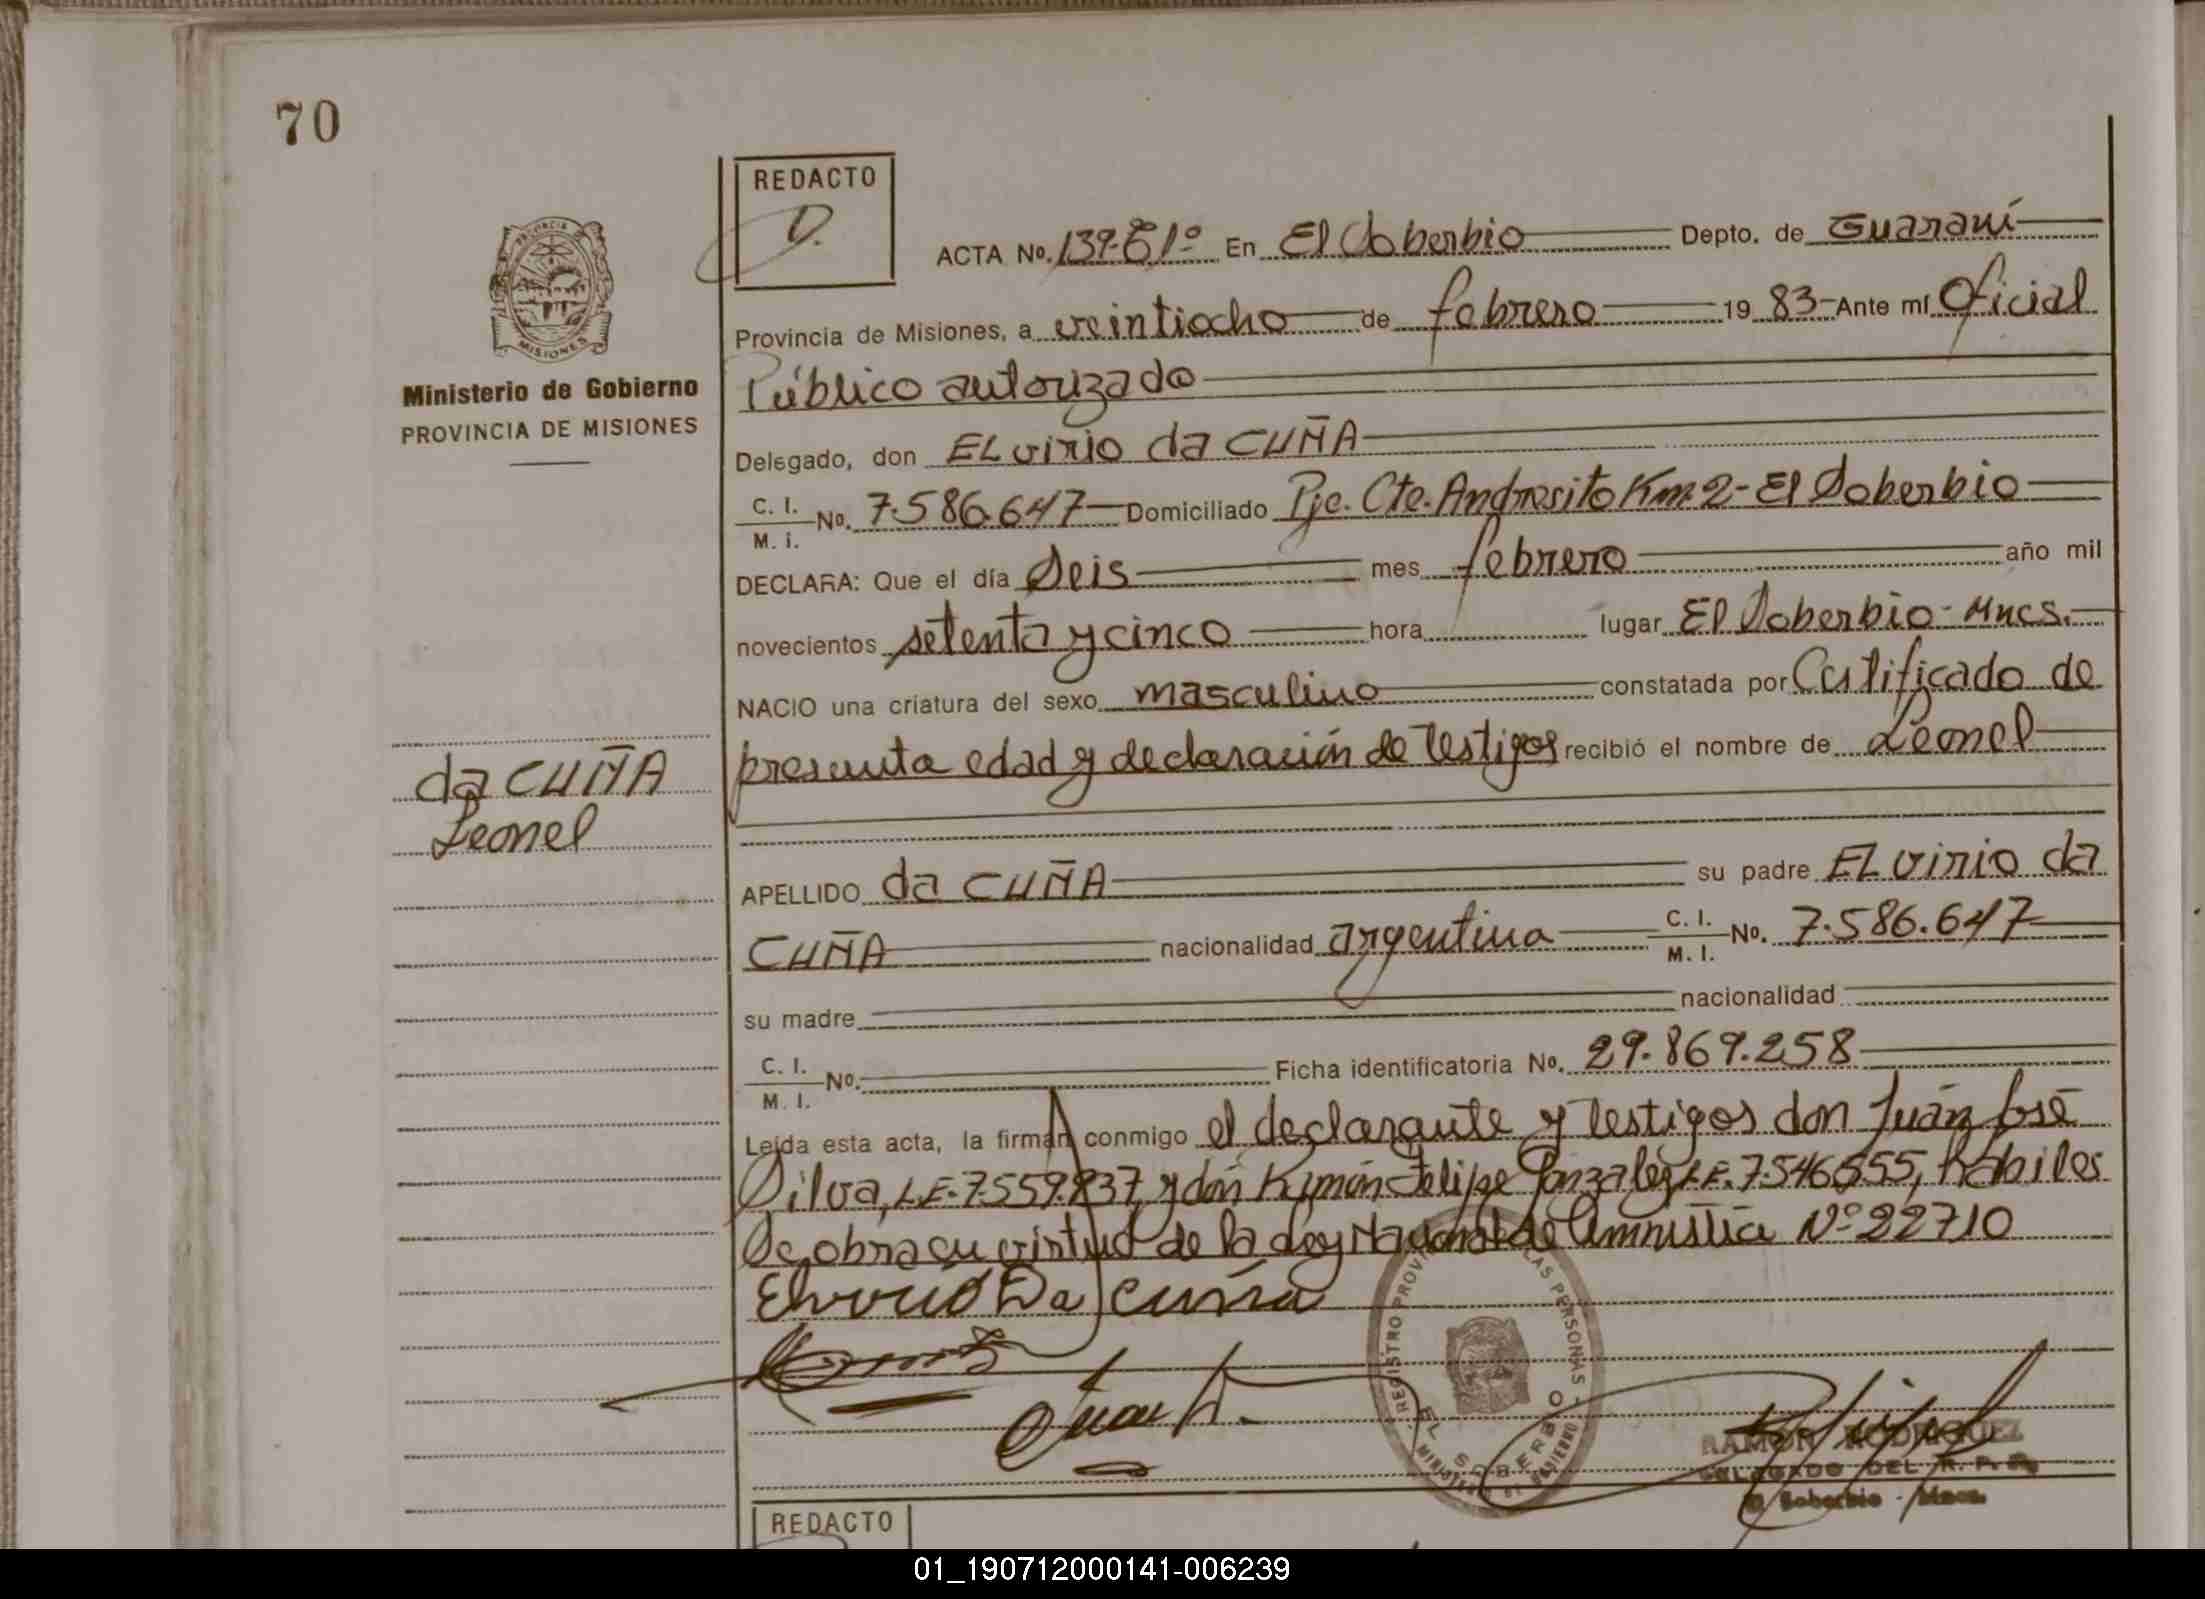 70
REDACTO
D.
ACTA Nº. 139-T1º En El Soberbio Depto. de Guaraní
Provincia de Misiones, a veintiocho de febrero 19 83 Ante mí Oficial
Público autorizado
Delegado, don ELvirio da CUÑA
C. I.
M. i. Nº. 7.586.647 Domiciliado Pje. Cte. Andresito Km. 2 - El Soberbio
DECLARA: Que el día Seis mes febrero año mil
novecientos setenta y cinco hora lugar El Soberbio - Mnes.
NACIO una criatura del sexo masculino constatada por Certificado de
presunta edad y declaración de testigos recibió el nombre de Leonel
APELLIDO da CUÑA su padre ELvirio da
CUÑA nacionalidad argentina C. I.
M. I. Nº. 7.586.647
su madre nacionalidad
C. I.
M. I. Nº. Ficha identificatoria Nº. 29.869.258
Leída esta acta, la firman conmigo el declarante y testigos don Juán José
Silva, L.E. 7.559.837, y don Ramón Felipe Gonzalez L.E. 7.546.555, hábiles
Se obra en virtud de la Ley Nacional de Amnistía Nº 22710
Elvirio Da Cuña
Juan
REGISTRO PROVI LAS PERSONAS
EL SOBERBIO
MINISTERIO DE GOBIERNO
RAMON RODRIGUEZ
DELEGADO DEL R. P. P.
El Soberbio - Mnes.
REDACTO
PROVINCIA
MISIONES
Ministerio de Gobierno
PROVINCIA DE MISIONES
da CUÑA
Leonel
01_190712000141-006239